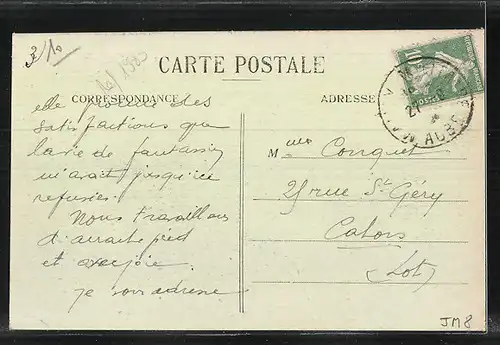 3/10
CARTE POSTALE
CORRESPONDANCE
ADRESSE
elle donne des
satisfactions que
la vie de fantassin
m'avait jusqu'ici
refusées.
Nous travaillons
d'arrache pied
et avec joie.
Je vous adresse
Melle Conquet
25 rue St Géry
Cahors
(Lot)
JM8